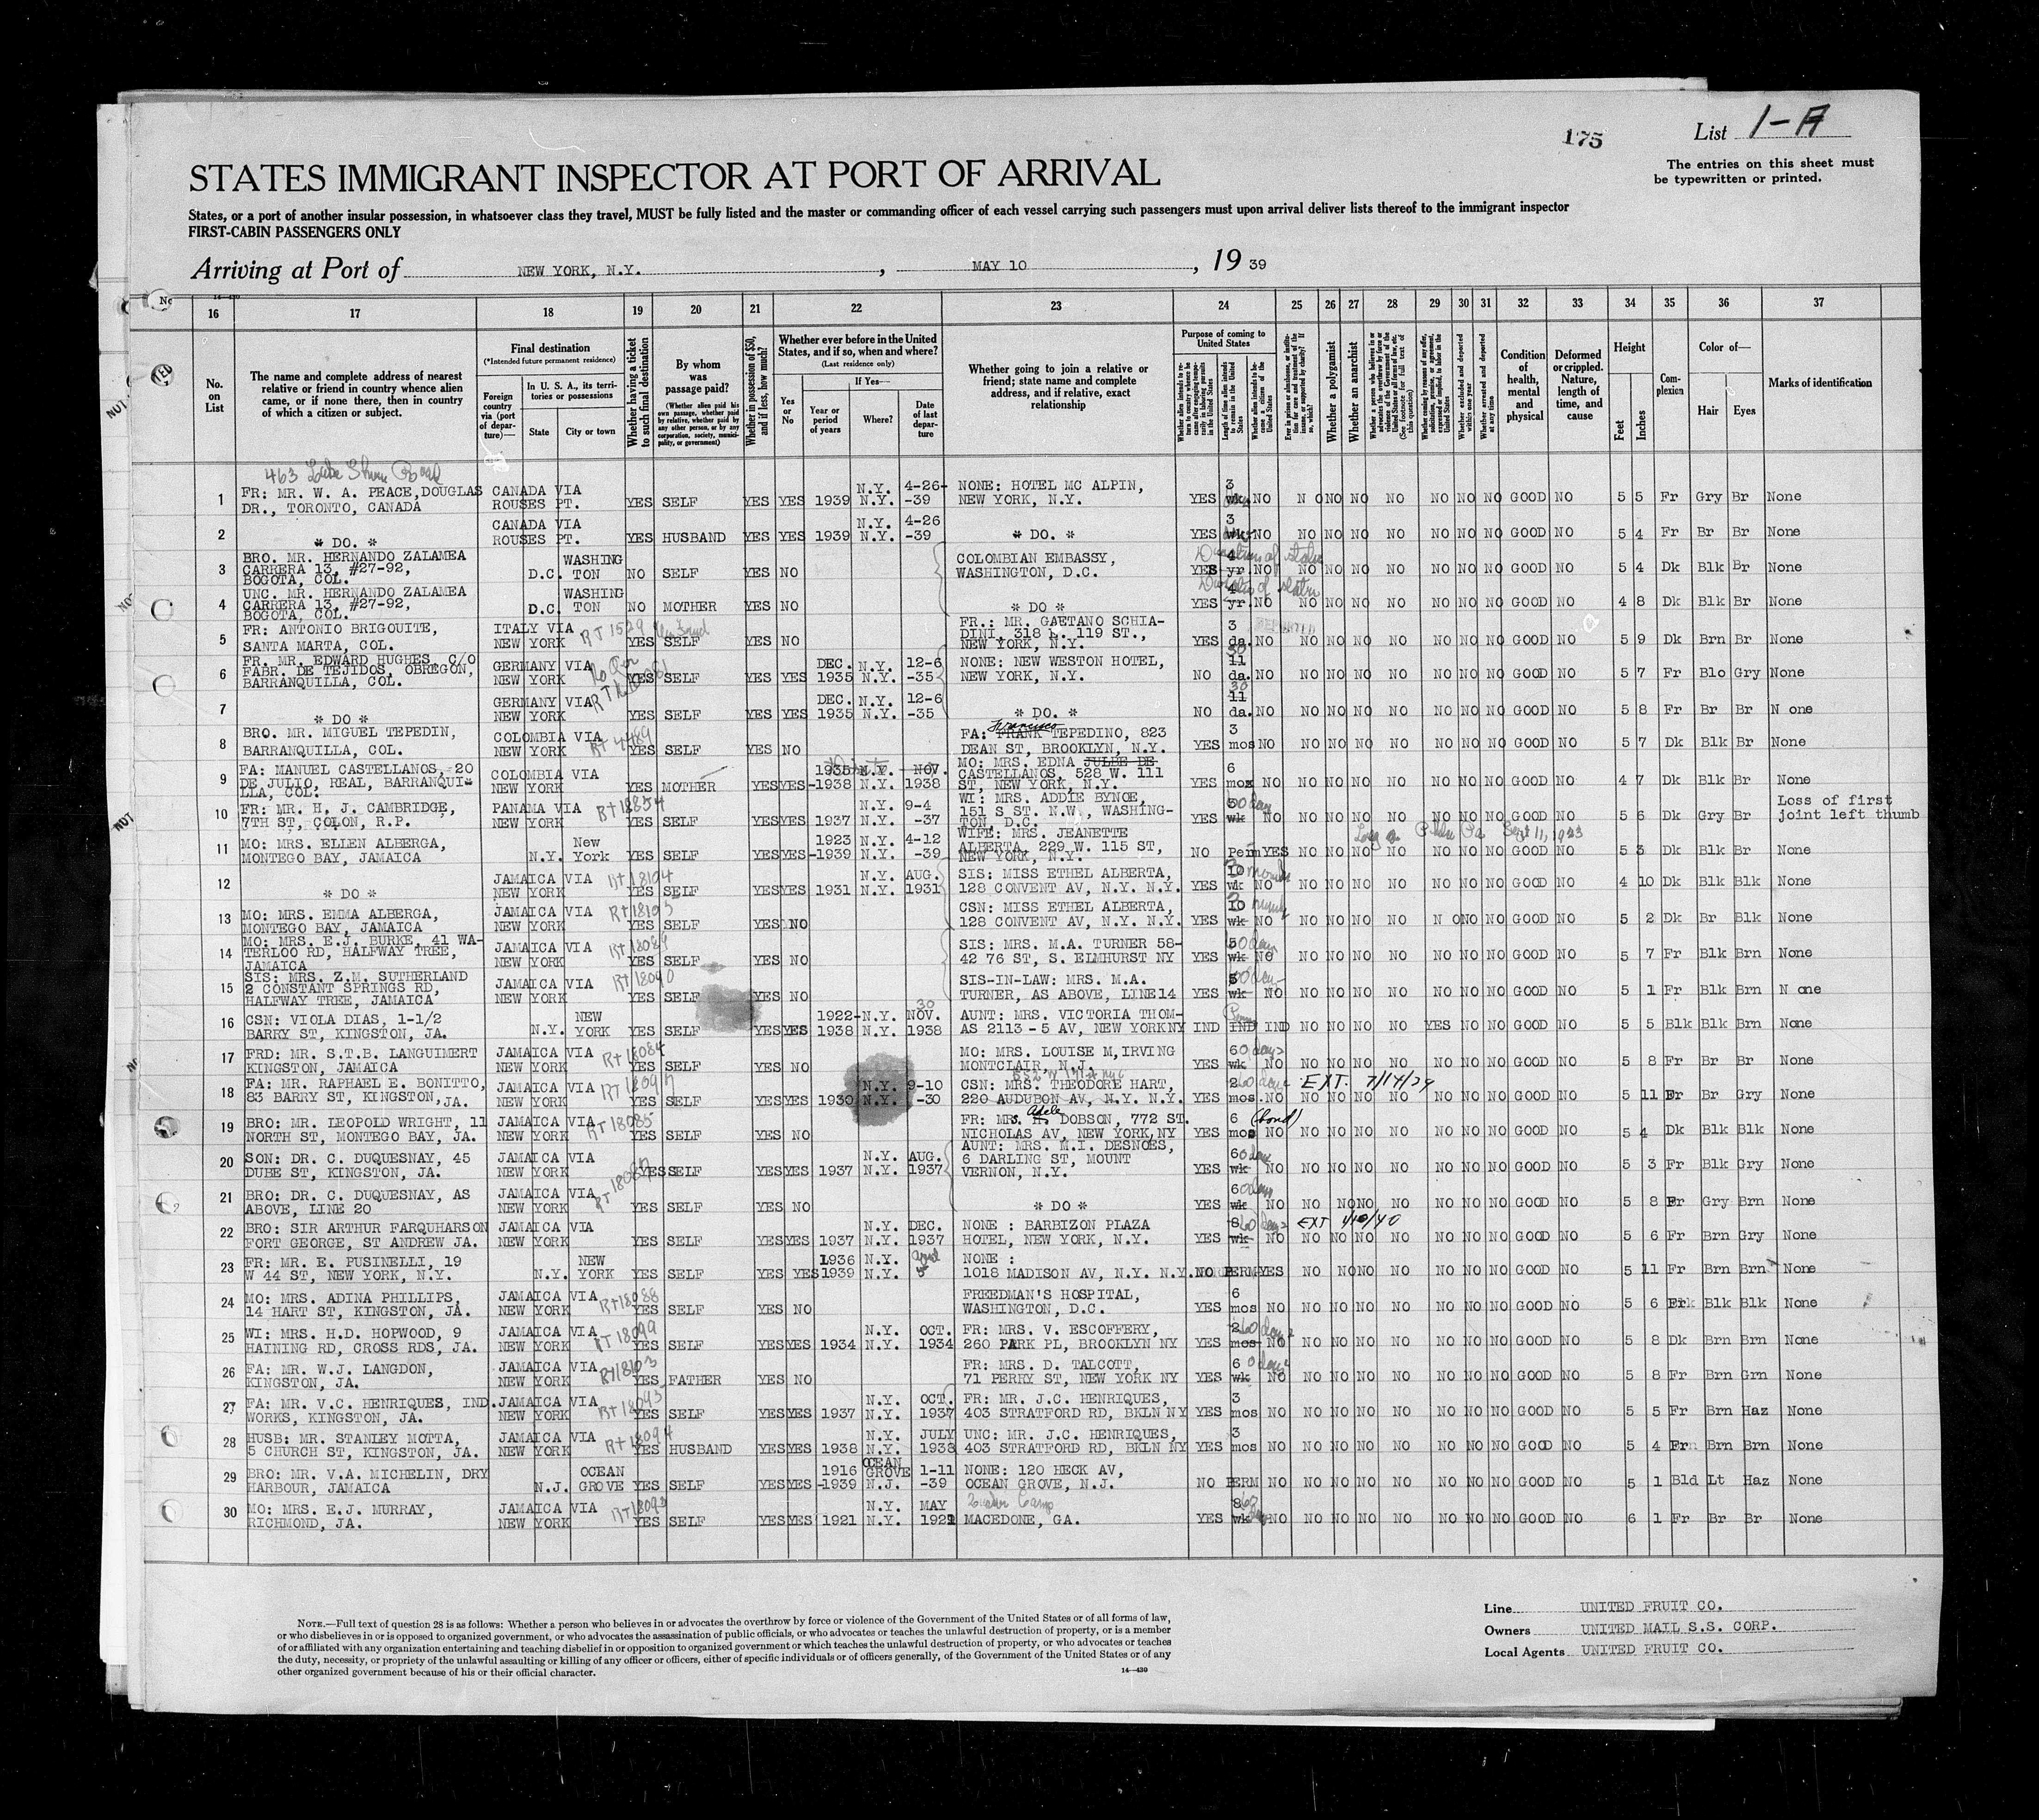 175
List 1-A
The entries on this sheet must
be typewritten or printed.
STATES IMMIGRANT INSPECTOR AT PORT OF ARRIVAL
States, or a port of another insular possession, in whatsoever class they travel, MUST be fully listed and the master or commanding officer of each vessel carrying such passengers must upon arrival deliver lists thereof to the immigrant inspector
FIRST-CABIN PASSENGERS ONLY
Arriving at Port of NEW YORK, N.Y. , MAY 10 , 19 39
16 17 18 19 20 21 22 23 24 25 26 27 28 29 30 31 32 33 34 35 36 37
No. on List
The name and complete address of nearest relative or friend in country whence alien came, or if none there, then in country of which a citizen or subject.
Final destination
(*Intended future permanent residence)
Foreign country via (port of departure)—
In U. S. A., its territories or possessions
State
City or town
Whether having a ticket to such final destination
By whom was passage paid?
(Whether alien paid his own passage, whether paid by relative, whether paid by any other person, or by any corporation, society, municipality, or government)
Whether in possession of $50, and if less, how much?
Whether ever before in the United States, and if so, when and where?
(Last residence only)
Yes or No
If Yes—
Year or period of years
Where?
Date of last departure
Whether going to join a relative or friend; state name and complete address, and if relative, exact relationship
Purpose of coming to United States
Length of time alien intends to remain in the United States
Whether alien intends to become a citizen of the United States
Whether a polygamist
Whether an anarchist
Whether excluded and deported within one year
Whether arrested and deported at any time
Condition of health, mental and physical
Deformed or crippled. Nature, length of time, and cause
Height
Feet
Inches
Complexion
Color of—
Hair
Eyes
Marks of identification
463 Lake Shore Road
1 FR: MR. W. A. PEACE, DOUGLAS DR., TORONTO, CANADA CANADA VIA ROUSES PT. YES SELF YES YES 1939 N.Y. N.Y. 4-26-39 NONE: HOTEL MC ALPIN, NEW YORK, N.Y. YES 3 wk. NO NO NO NO NO NO NO NO GOOD NO 5 5 Fr Gry Br None
2 * DO. * CANADA VIA ROUSES PT. YES HUSBAND YES YES 1939 N.Y. N.Y. 4-26 -39 * DO. * YES 3 wk. NO NO NO NO NO NO NO NO GOOD NO 5 4 Fr Br Br None
3 BRO. MR. HERNANDO ZALAMEA CARRERA 13, #27-92, BOGOTA, COL. D.C. WASHINGTON NO SELF YES NO COLOMBIAN EMBASSY, WASHINGTON, D.C. Duration of status YES 4 yr. NO NO NO NO NO NO NO NO GOOD NO 5 4 Dk Blk Br None
4 UNC. MR. HERNANDO ZALAMEA CARRERA 13, #27-92, BOGOTA, COL. D.C. WASHINGTON NO MOTHER YES NO * DO * Duration of status YES yr. NO NO NO NO NO NO NO NO GOOD NO 4 8 Dk Blk Br None
5 FR: ANTONIO BRIGOUITE, SANTA MARTA, COL. ITALY VIA NEW YORK RT 1529 YES SELF YES NO FR.: MR. GAETANO SCHIADINI, 318 E. 119 ST., NEW YORK, N.Y. YES 3 da. NO NO NO NO NO NO NO NO GOOD NO 5 9 Dk Brn Br None
6 FR. MR. EDWARD HUGHES, C/O FABR. DE TEJIDOS, OBREGON, BARRANQUILLA, COL. GERMANY VIA NEW YORK YES SELF YES YES DEC. 1935 N.Y. N.Y. 12-6 -35 NONE: NEW WESTON HOTEL, NEW YORK, N.Y. NO 30 11 da. NO NO NO NO NO NO NO NO GOOD NO 5 7 Fr Blo Gry None
7 * DO * GERMANY VIA NEW YORK YES SELF YES YES DEC. 1935 N.Y. N.Y. 12-6 -35 * DO. * NO 30 11 da. NO NO NO NO NO NO NO NO GOOD NO 5 8 Fr Br Br None
8 BRO. MR. MIGUEL TEPEDIN, BARRANQUILLA, COL. COLOMBIA VIA NEW YORK RT 4489 YES SELF YES NO FA: FRANK Francisco TEPEDINO, 823 DEAN ST, BROOKLYN, N.Y. YES 3 mos NO NO NO NO NO NO NO NO GOOD NO 5 7 Dk Blk Br None
9 FA: MANUEL CASTELLANOS, 20 DE JULIO, REAL, BARRANQUILLA, COL. COLOMBIA VIA NEW YORK YES MOTHER YES YES 1935-1938 N.Y. N.Y. NOV. 1938 MO: MRS. EDNA JULBE DE CASTELLANOS, 528 W. 111 ST, NEW YORK, N.Y. YES 6 mos NO NO NO NO NO NO NO NO GOOD NO 4 7 Dk Blk Br None
10 FR: MR. H. J. CAMBRIDGE, 7TH ST, COLON, R.P. PANAMA VIA NEW YORK RT 18854 YES SELF YES YES 1937 N.Y. N.Y. 9-4 -37 WI: MRS. ADDIE BYNOE, 151 S ST. N.W., WASHINGTON, D.C. YES 60 days wk NO NO NO NO NO NO NO NO GOOD NO 5 6 Dk Gry Br Loss of first joint left thumb
11 MO: MRS. ELLEN ALBERGA, MONTEGO BAY, JAMAICA N.Y. New York YES SELF YES YES 1923-1939 N.Y. N.Y. 4-12 -39 WIFE: MRS. JEANETTE ALBERTA, 229 W. 115 ST, NEW YORK, N.Y. NO Perm YES NO NO NO NO NO NO NO GOOD NO 5 3 Dk Blk Br None
12 * DO * JAMAICA VIA NEW YORK RT 18104 YES SELF YES YES 1931 N.Y. N.Y. AUG. 1931 SIS: MISS ETHEL ALBERTA, 128 CONVENT AV, N.Y. N.Y. YES 3 months 10 wk NO NO NO NO NO NO NO NO GOOD NO 4 10 Dk Blk Blk None
13 MO: MRS. EMMA ALBERGA, MONTEGO BAY, JAMAICA JAMAICA VIA NEW YORK RT 18105 YES SELF YES NO CSN: MISS ETHEL ALBERTA, 128 CONVENT AV, N.Y. N.Y. YES 10 wk NO NO NO NO NO NO NO NO GOOD NO 5 2 Dk Br Blk None
14 MO: MRS. E.J. BURKE, 41 WATERLOO RD, HALFWAY TREE, JAMAICA JAMAICA VIA NEW YORK RT 18089 YES SELF YES NO SIS: MRS. M.A. TURNER 58-42 76 ST, S. ELMHURST NY YES 60 days wk NO NO NO NO NO NO NO NO GOOD NO 5 7 Fr Blk Brn None
15 SIS: MRS. Z.M. SUTHERLAND 2 CONSTANT SPRINGS RD, HALFWAY TREE, JAMAICA JAMAICA VIA NEW YORK RT 18090 YES SELF YES NO SIS-IN-LAW: MRS. M.A. TURNER, AS ABOVE, LINE 14 YES 60 days wk NO NO NO NO NO NO NO NO GOOD NO 5 1 Fr Blk Brn None
16 CSN: VIOLA DIAS, 1-1/2 BARRY ST, KINGSTON, JA. N.Y. NEW YORK YES SELF YES YES 1922-1938 N.Y. N.Y. 30 NOV. 1938 AUNT: MRS. VICTORIA THOMAS 2113 - 5 AV, NEW YORK NY IND Perm IND IND NO NO NO NO YES NO NO GOOD NO 5 5 Blk Blk Brn None
17 FRD: MR. S.T.B. LANGUIMERT KINGSTON, JAMAICA JAMAICA VIA NEW YORK RT 18084 YES SELF YES NO MO: MRS. LOUISE M, IRVING MONTCLAIR, N.J. YES 60 days wk NO NO NO NO NO NO NO NO GOOD NO 5 8 Fr Br Br None
18 FA: MR. RAPHAEL E. BONITTO, 83 BARRY ST, KINGSTON, JA. JAMAICA VIA NEW YORK RT 18097 YES SELF YES YES 1930 N.Y. N.Y. 9-10 -30 CSN: MRS. THEODORE HART, 220 AUDUBON AV, N.Y. N.Y. YES 2 60 days mos. NO EXT. 7/14/39 NO NO NO NO NO NO NO GOOD NO 5 11 Fr Br Gry None
19 BRO: MR. LEOPOLD WRIGHT, 11 NORTH ST, MONTEGO BAY, JA. JAMAICA VIA NEW YORK RT 18085 YES SELF YES NO FR: MRS. Adele DOBSON, 772 ST. NICHOLAS AV, NEW YORK, NY YES 6 mos (bond) NO NO NO NO NO NO NO NO GOOD NO 5 4 Dk Blk Blk None
20 SON: DR. C. DUQUESNAY, 45 DUBE ST, KINGSTON, JA. JAMAICA VIA NEW YORK YES SELF YES YES 1937 N.Y. N.Y. AUG. 1937 AUNT: MRS. M.I. DESNOES, 6 DARLING ST, MOUNT VERNON, N.Y. YES 60 days wk NO NO NO NO NO NO NO NO GOOD NO 5 3 Fr Blk Gry None
21 BRO: DR. C. DUQUESNAY, AS ABOVE, LINE 20 JAMAICA VIA NEW YORK YES SELF YES NO * DO * YES 60 days wk NO NO NO NO NO NO NO NO GOOD NO 5 8 Fr Gry Brn None
22 BRO: SIR ARTHUR FARQUHARSON FORT GEORGE, ST ANDREW JA. JAMAICA VIA NEW YORK YES SELF YES YES 1937 N.Y. N.Y. DEC. 1937 NONE : BARBIZON PLAZA HOTEL, NEW YORK, N.Y. YES 8 60 days wk NO EXT 1/10/40 NO NO NO NO NO NO NO GOOD NO 5 6 Fr Brn Gry None
23 FR: MR. E. PUSINELLI, 19 W 44 ST, NEW YORK, N.Y. N.Y. NEW YORK YES SELF YES YES 1936 1939 N.Y. N.Y. NONE : 1018 MADISON AV, N.Y. N.Y. NO PERM YES NO NO NO NO NO NO NO GOOD NO 5 11 Fr Brn Brn None
24 MO: MRS. ADINA PHILLIPS, 14 HART ST, KINGSTON, JA. JAMAICA VIA NEW YORK RT 18088 YES SELF YES NO FREEDMAN'S HOSPITAL, WASHINGTON, D.C. YES 6 mos NO NO NO NO NO NO NO NO GOOD NO 5 6 Blk Blk None
25 WI: MRS. H.D. HOPWOOD, 9 HAINING RD, CROSS RDS, JA. JAMAICA VIA NEW YORK RT 18099 YES SELF YES YES 1934 N.Y. N.Y. OCT. 1934 FR: MRS. V. ESCOFFERY, 260 PARK PL, BROOKLYN NY YES 2 60 days mos NO NO NO NO NO NO NO NO GOOD NO 5 8 Dk Brn Brn None
26 FA: MR. W.J. LANGDON, KINGSTON, JA. JAMAICA VIA NEW YORK RT 18103 YES FATHER YES NO FR: MRS. D. TALCOTT, 71 PERRY ST, NEW YORK NY YES 60 days wk NO NO NO NO NO NO NO NO GOOD NO 5 8 Fr Brn Grn None
27 FA: MR. V.C. HENRIQUES, IND. WORKS, KINGSTON, JA. JAMAICA VIA NEW YORK RT 18095 YES SELF YES YES 1937 N.Y. N.Y. OCT. 1937 FR: MR. J.C. HENRIQUES, 403 STRATFORD RD, BKLN NY YES 3 mos NO NO NO NO NO NO NO NO GOOD NO 5 5 Fr Brn Haz None
28 HUSB: MR. STANLEY MOTTA, 5 CHURCH ST, KINGSTON, JA. JAMAICA VIA NEW YORK RT 18094 YES HUSBAND YES YES 1938 N.Y. N.Y. JULY 1938 UNC: MR. J.C. HENRIQUES, 403 STRATFORD RD, BKLN NY YES 3 mos NO NO NO NO NO NO NO NO GOOD NO 5 4 Fr Brn Brn None
29 BRO: MR. V.A. MICHELIN, DRY HARBOUR, JAMAICA N.J. OCEAN GROVE YES SELF YES YES 1916-1939 OCEAN GROVE N.J. 1-11 -39 NONE: 120 HECK AV, OCEAN GROVE, N.J. NO PERM NO NO NO NO NO NO NO NO GOOD NO 5 1 Bld Lt Haz None
30 MO: MRS. E.J. MURRAY, RICHMOND, JA. JAMAICA VIA NEW YORK RT 18093 YES SELF YES YES 1921 N.Y. N.Y. MAY 1921 Quaker Camp MACEDONE, GA. YES 8 wk NO NO NO NO NO NO NO NO GOOD NO 6 1 Fr Br Br None
NOTE.—Full text of question 28 is as follows: Whether a person who believes in or advocates the overthrow by force or violence of the Government of the United States or of all forms of law,
or who disbelieves in or is opposed to organized government, or who advocates the assassination of public officials, or who advocates or teaches the unlawful destruction of property, or is a member
of or affiliated with any organization entertaining and teaching disbelief in or opposition to organized government or which teaches the unlawful destruction of property, or who advocates or teaches
the duty, necessity, or propriety of the unlawful assaulting or killing of any officer or officers, either of specific individuals or of officers generally, of the Government of the United States or of any
other organized government because of his or their official character.
14—439
Line UNITED FRUIT CO.
Owners UNITED MAIL S.S. CORP.
Local Agents UNITED FRUIT CO.